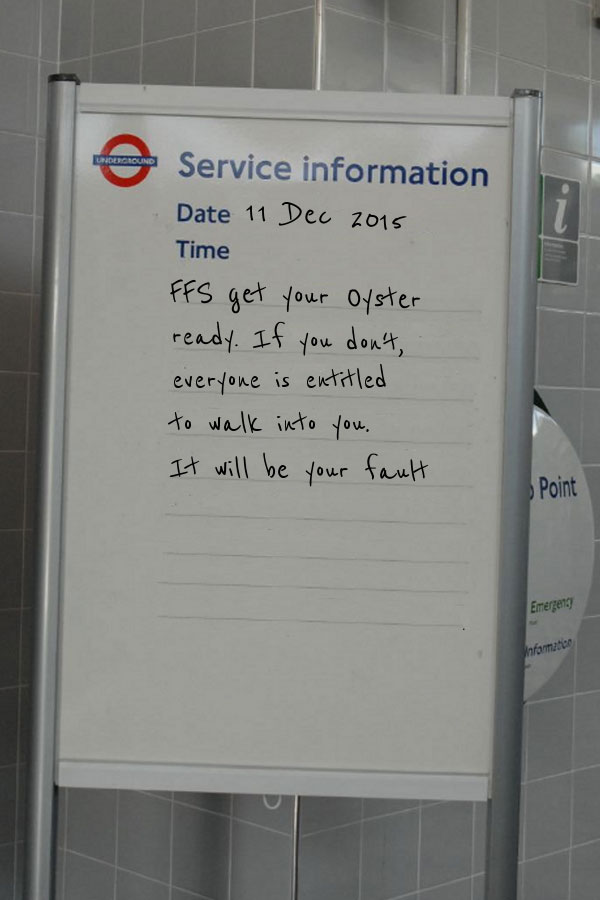 UNDERGROUND
Service information
Date 11 Dec 2015
Time
FFS get your Oyster
ready. If you don't,
everyone is entitled
to walk into you.
It will be your fault
i
Point
Emergency
Information